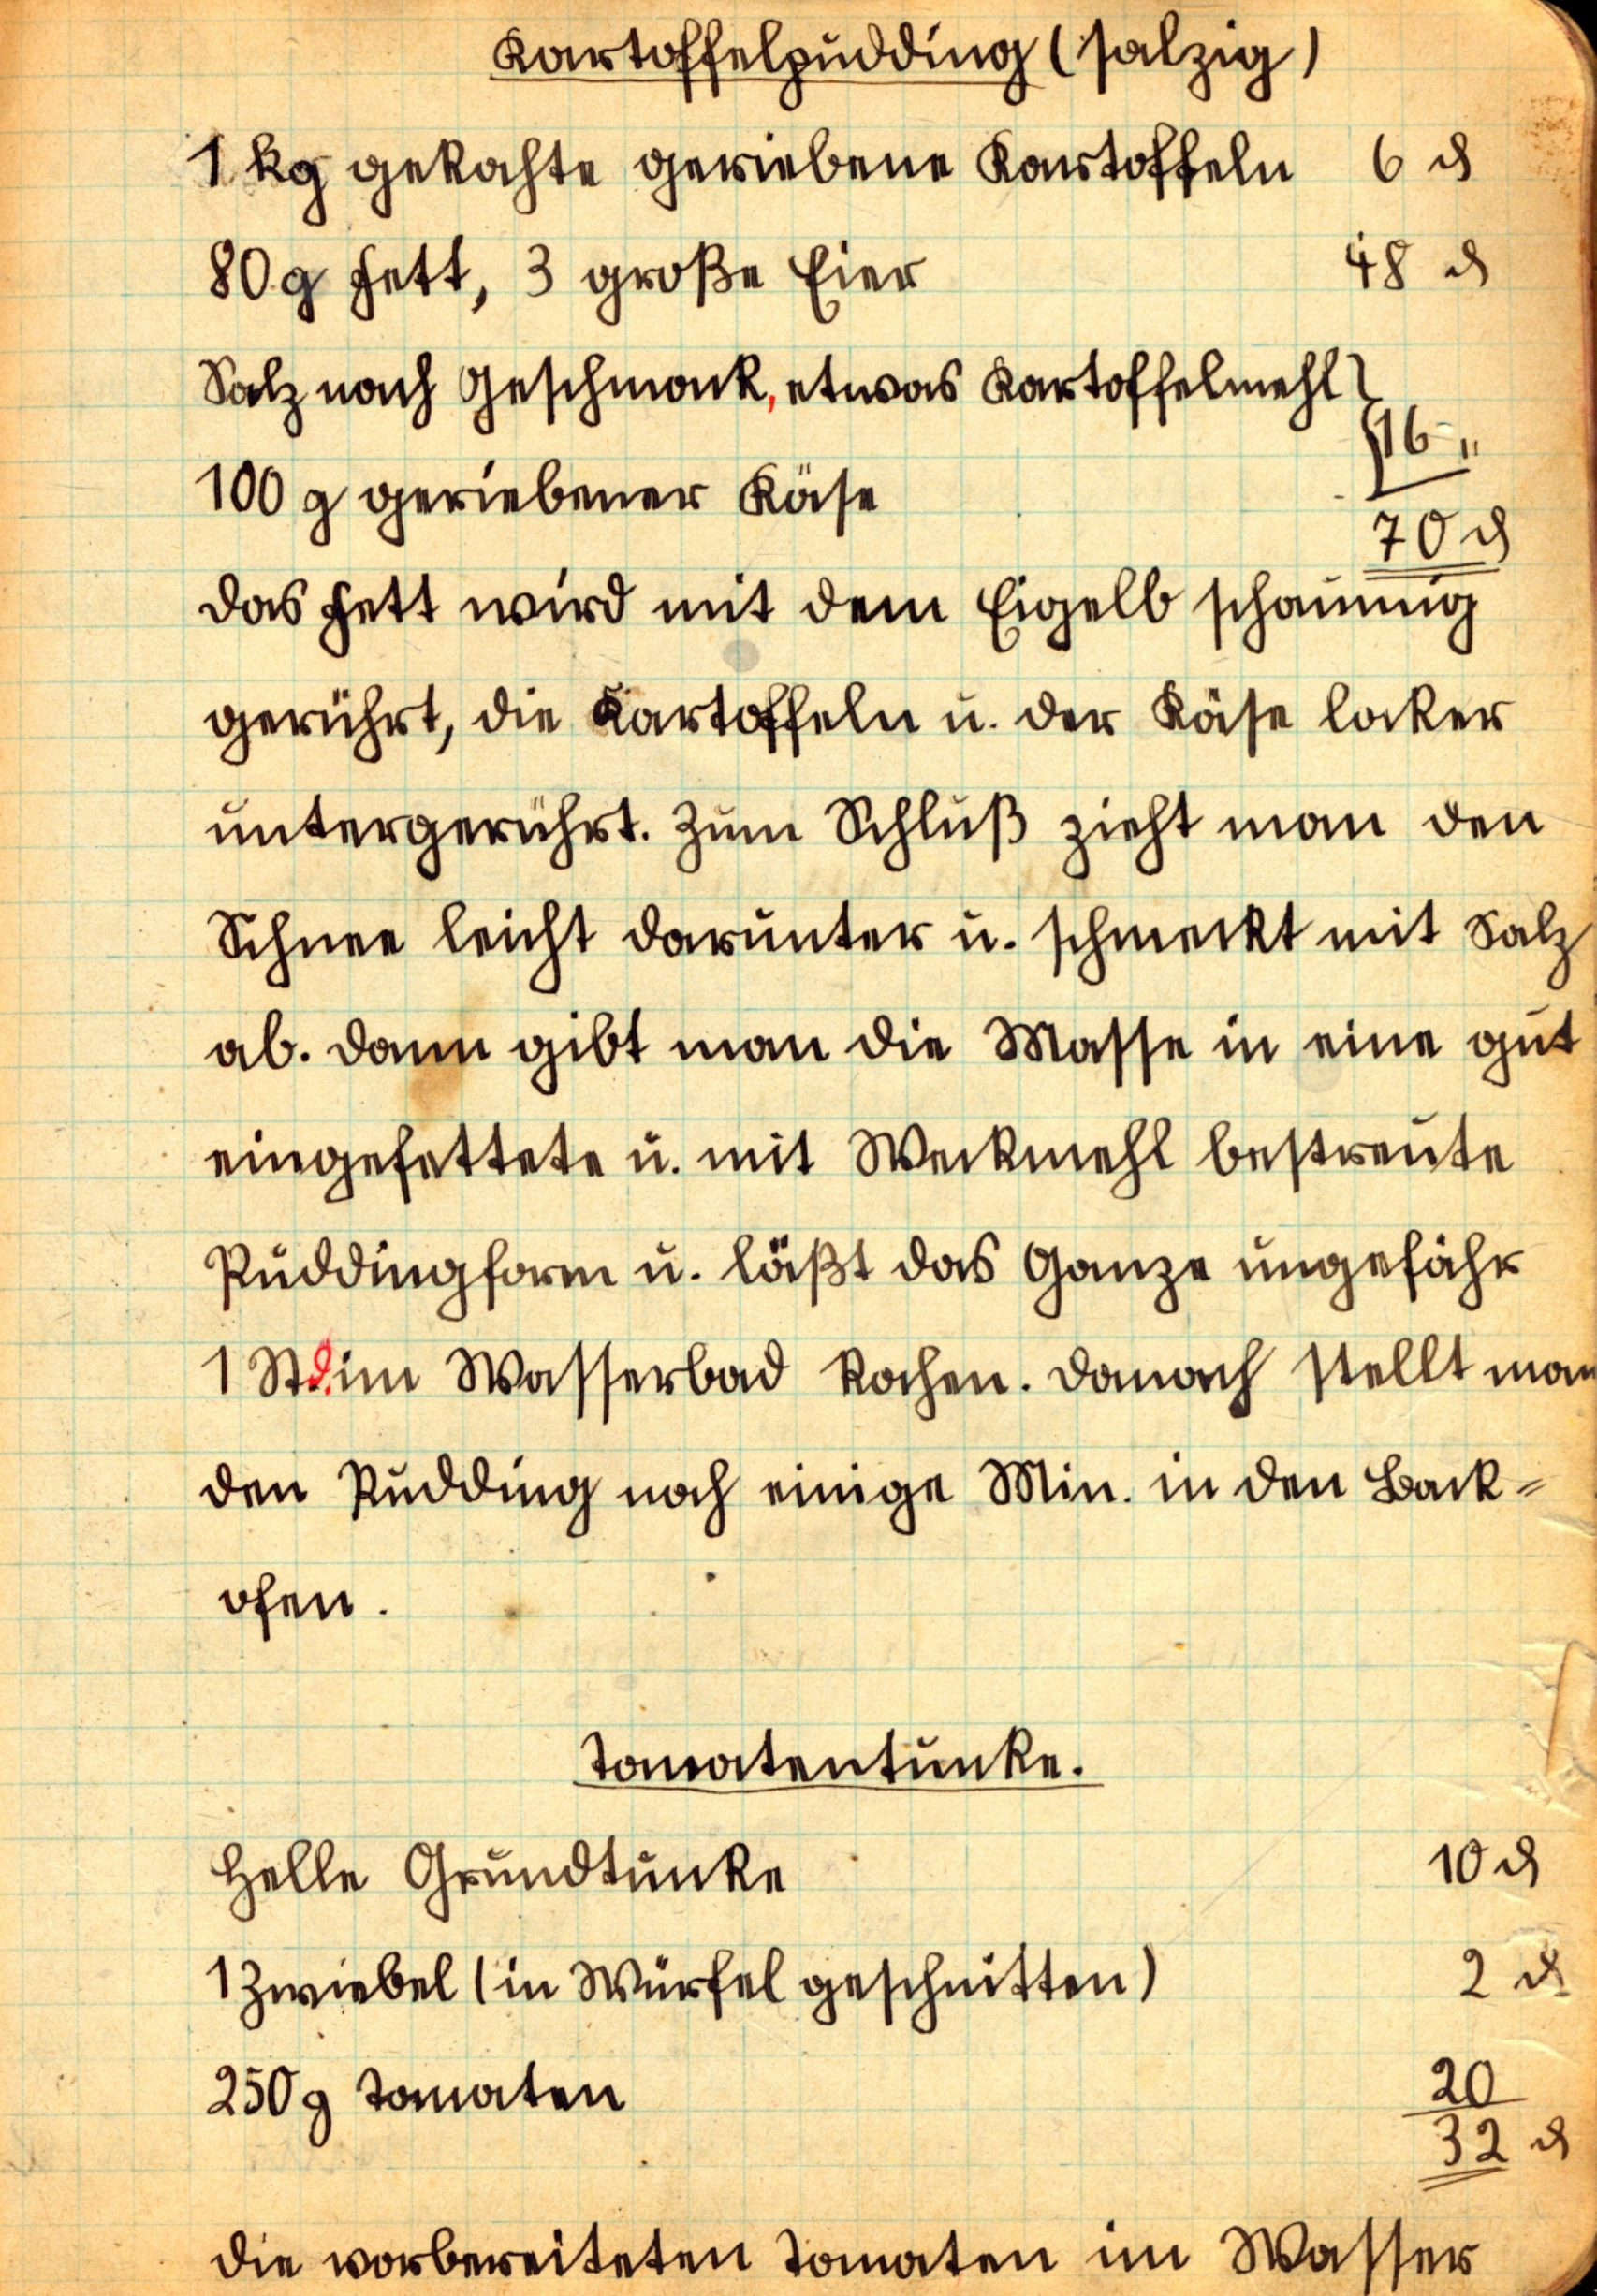 Kartoffelpudding (salzig)
1 kg gekochte geriebene Kartoffeln 6 ₰
80 g Fett, 3 große Eier 48 ₰
Salz nach Geschmack, etwas Kartoffelmehl }
{ 16 "
100 g geriebener Käse
70 ₰
Das Fett wird mit dem Eigelb schaumig
gerührt, die Kartoffeln u. der Käse locker
untergerührt. Zum Schluß zieht man den
Schnee leicht darunter u. schmeckt mit Salz
ab. Dann gibt man die Masse in eine gut
eingefettete u. mit Weckmehl bestreute
Puddingform u. läßt das Ganze ungefähr
1 Std. im Wasserbad kochen. Danach stellt man
den Pudding noch einige Min. in den Back=
ofen.
Tomatentunke.
Helle Grundtunke 10 ₰
1 Zwiebel (in Würfel geschnitten) 2 ₰
250 g Tomaten 20
32 ₰
Die vorbereiteten Tomaten im Wasser